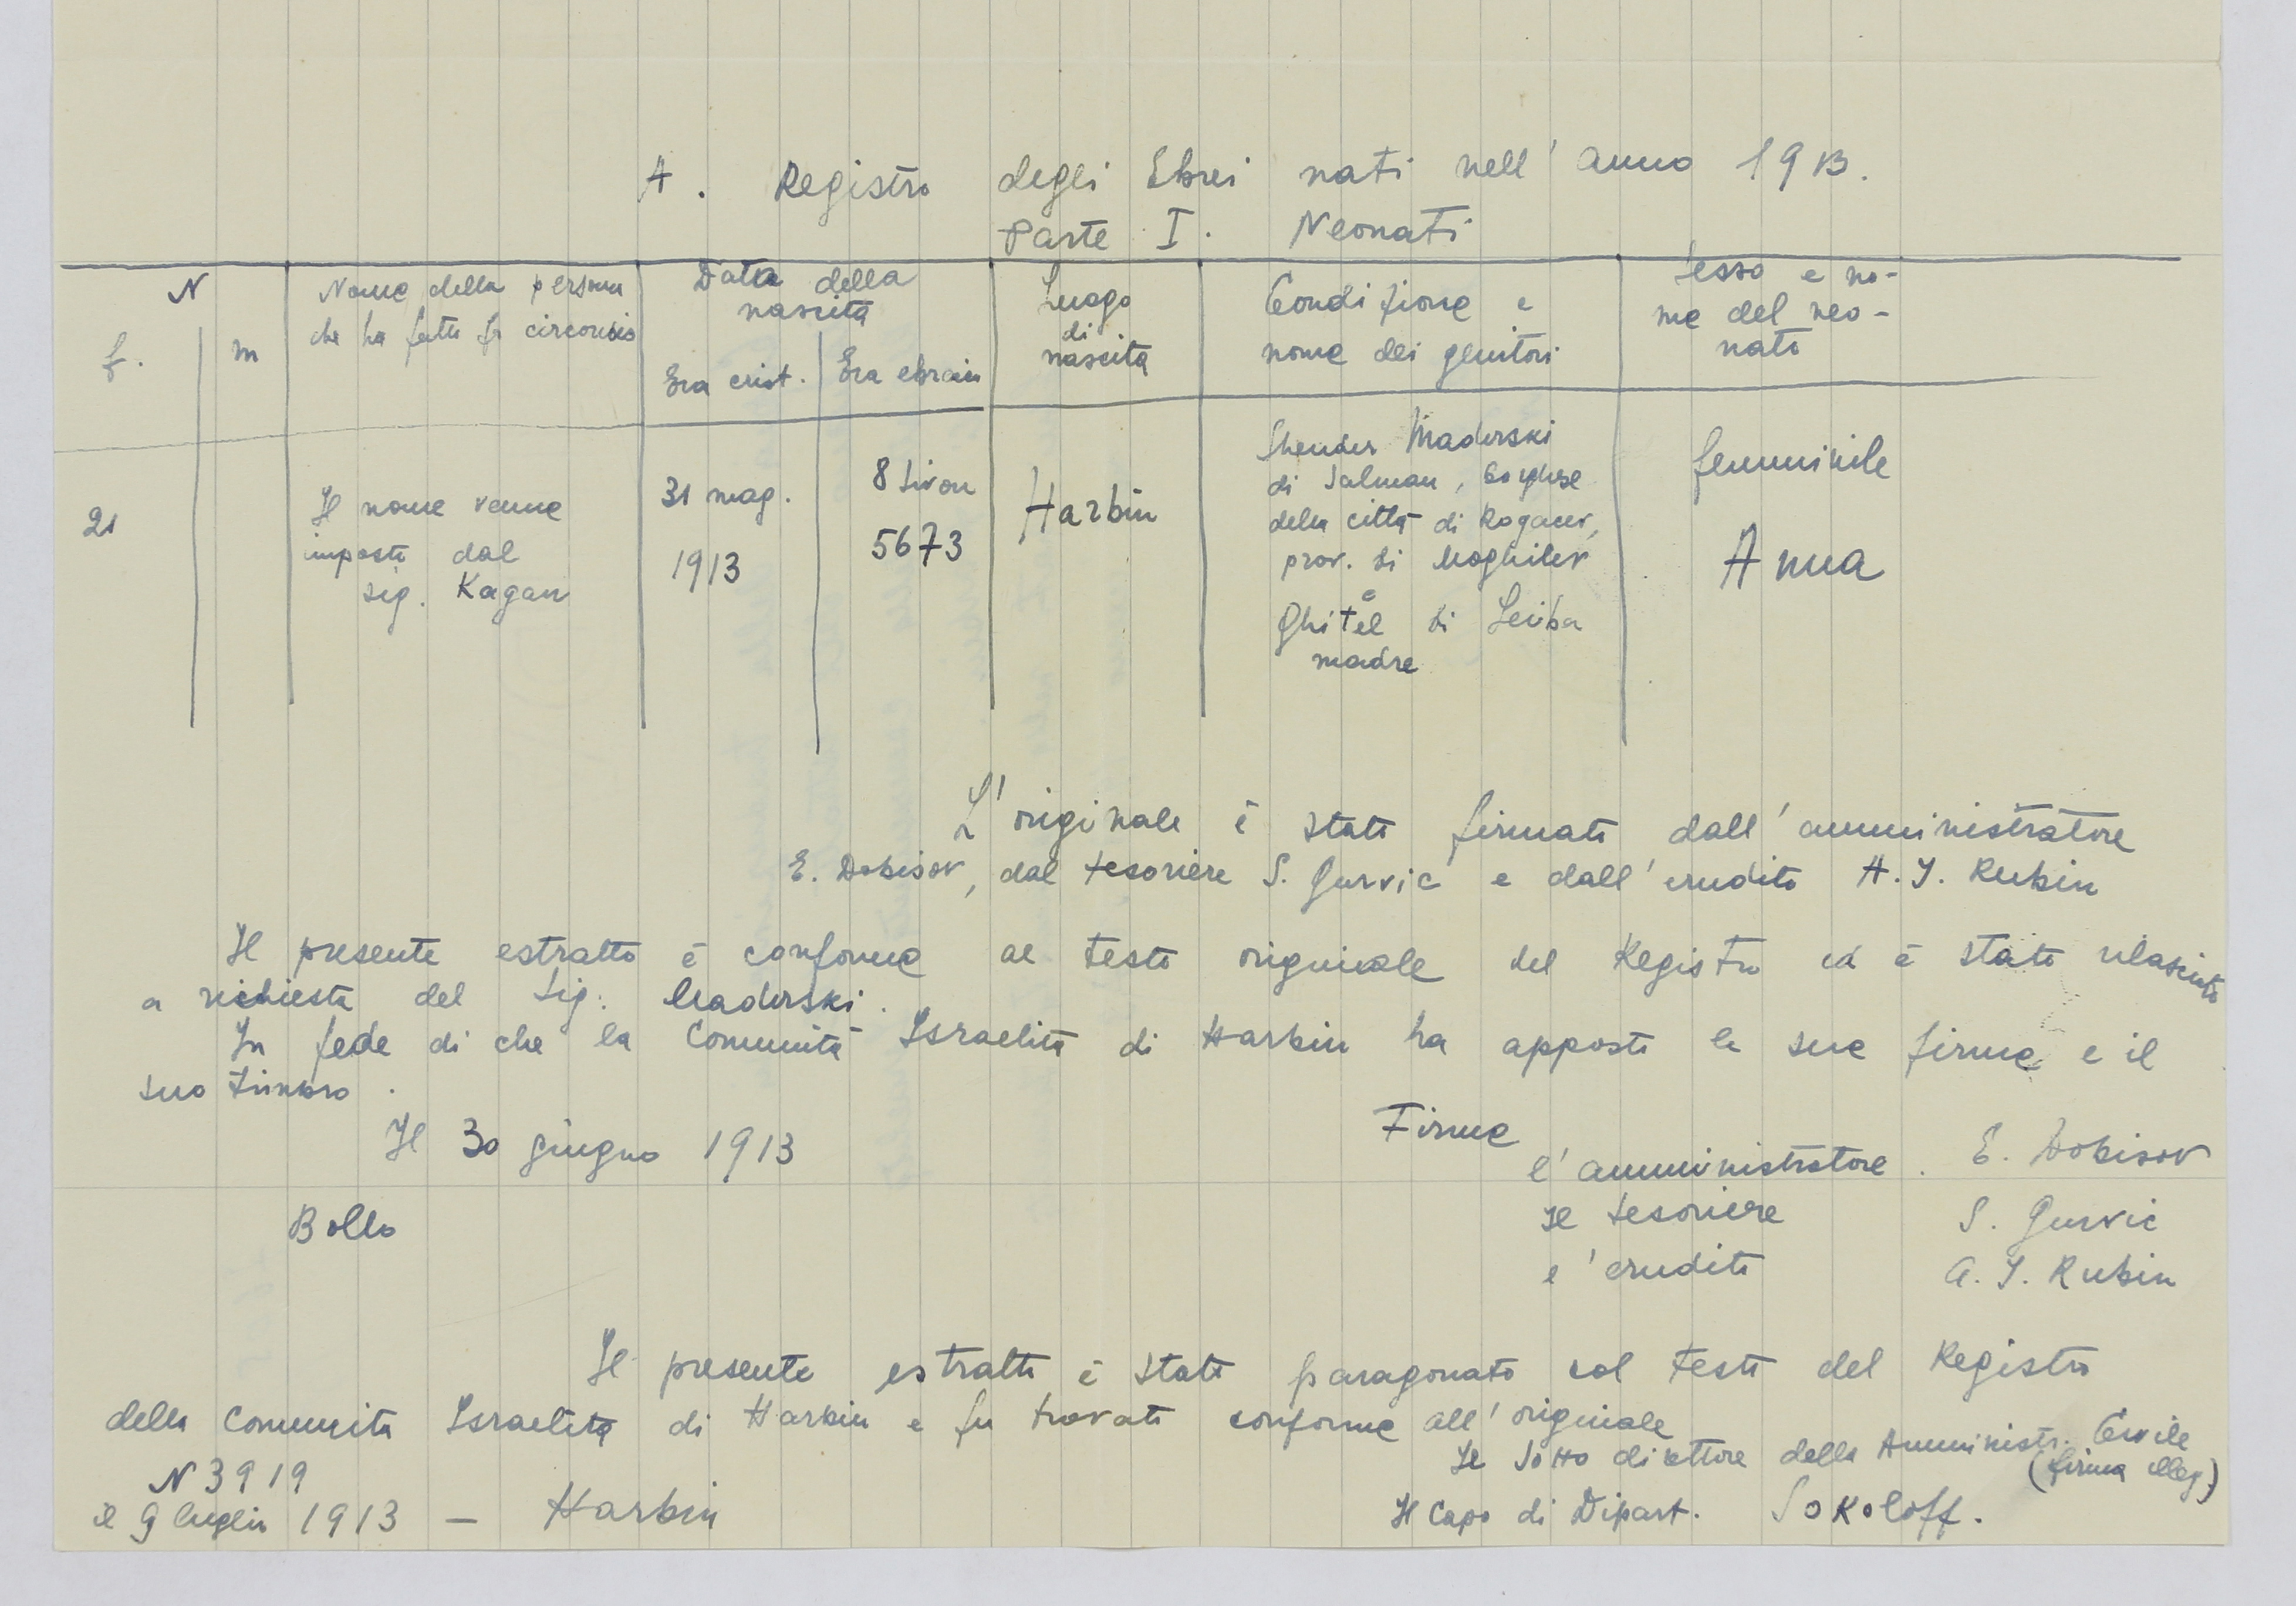 A. Registro degli Ebrei nati nell' anno 1913.
Parte I. Neonati
N
f.
m
Nome della persona
che ha fatto la circoncis
Data della
nascita
Era crist.
Era ebraic
Luogo
di
nascita
Condizione e
nome dei genitori
Sesso e no-
me del neo-
nato
21
Il nome venne
imposto dal
sig. Kagan
31 mag.
1913
8 Sivon
5673
Harbin
Shender Maderski
di Salman, borghese
della città di Rogacev,
prov. di Moghilev
e
Ghitel di Leiba
madre
femminile
Anna
L'originale è stato firmato dall'amministratore
E. Dobisov, dal tesoriere S. Gurvic e dall'erudito A. I. Rubin
Il presente estratto è conforme al testo originale del Registro ed è stato rilasciato
a richiesta del Sig. Maderski.
In fede di che la Comunità Israelita di Harbin ha apposto le sue firme e il
suo timbro.
Il 30 giugno 1913
Firme
l'amministratore. E. Dobisov
Il tesoriere S. Gurvic
l'erudito A. I. Rubin
Bollo
Il presente estratto è stato paragonato col testo del Registro
della Comunità Israelita di Harbin e fu trovato conforme all'originale
Il Sotto direttore della Amministr. Civile
(firma illeg)
N 3919
il 9 luglio 1913 — Harbin
Il Capo di Dipart. Sokoloff.